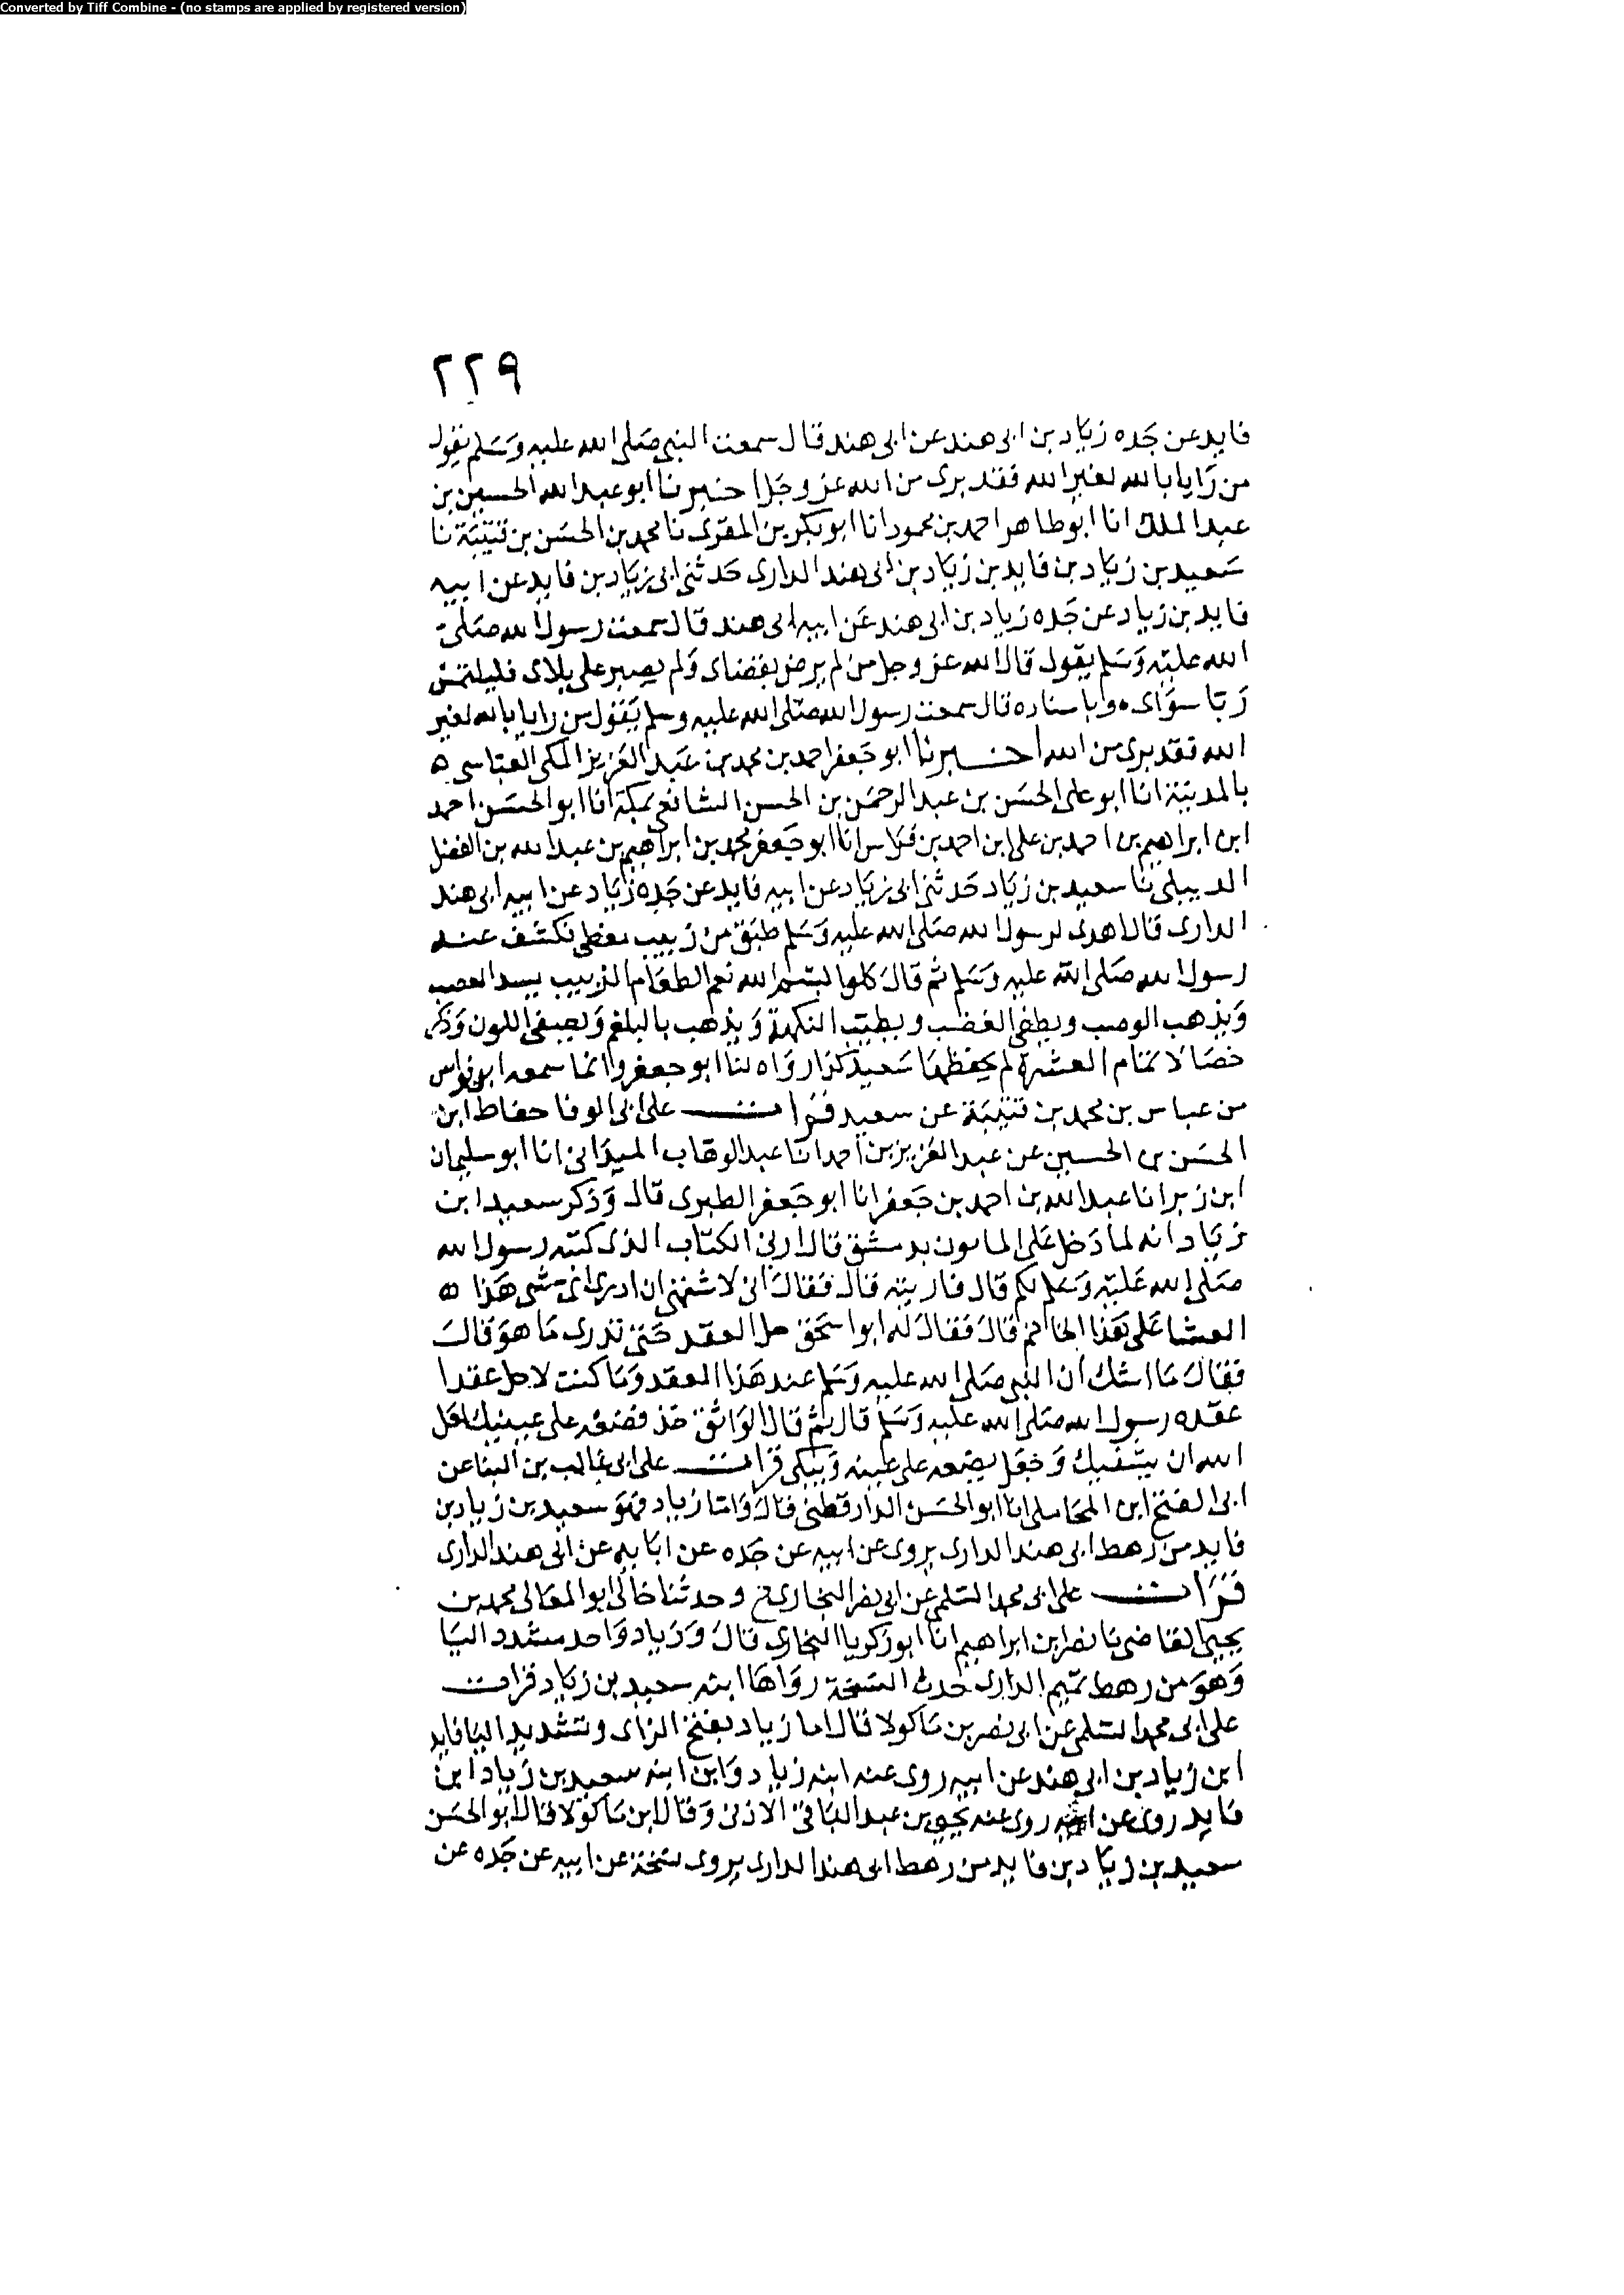 Converted by Tiff Combine - (no stamps are applied by registered version)
٢٢٩
فايد عن جَده زيَاد بن ابى هند عن ابى هند قال سمعت النبى صَلى الله عليه وَسَلم يقول
من رَايا بالله لغير الله فقد برى من الله عز وجَل اخبرنا ابو عبد الله الحسين بن
عبد الملك انا ابو طاهر احمد بن محمود انا ابو بكر بن المقرى نا محمد بن الحسَن بن قتيبَة نا
سَعيد بن زيَاد بن فايد بن زيَاد بن ابى هند الدارى حَدثنى ابى زيَاد بن فايد عن ابيه
فايد بن زياد عن جَده زياد بن ابى هند عَن ابيه ابى هند قال سمعت رسول الله صَلى
الله عليْه وَسَلم يقول قال الله عز وجل من لم يرض بقضاى وَلم يصبر على بلاى فليلتمسْ
رَبا سوَاى ٥ وباسناده قال سمعت رسول الله صَلى الله عليه وسلم يَقول من رايا بالله لغير
الله فقد برى من الله اخبرنا ابو جَعفر احمد بن محمد بن عَبد العَزيز المكى العبَاسى ه
بالمدينة انا ابو على الحسَن بن عبد الرحمَن بن الحسن الشافعى بمكة انا ابو الحسَن احمد
ابن ابراهيم بن احمد بن على ابن احمد بن فرَاس انا ابو جَعفر محمد بن ابراهيم بن عبد الله بن الفضل
الديبلى نا سعيد بن زيَاد حَدثنى ابى زيَاد عن ابيه فايد عن جَده زيَاد عن ابيه ابى هند
الدارى قال اهدى لرسول الله صَلى الله عليه وَسَلم طبَق من زبيب مغطى فكشف عنه
رسول الله صَلى الله عليه وَسَلم ثم قالَ كلوا بسْم الله نعم الطعَام الزبيب يسد العصب
وَيذهب الوصب ويطفى الغضب ويطيّب النكهة وَيذهب بالبلغم وَيصفى اللون وَذكر
خصَالا تمام العشرة لم يحفظهَا سَعيد كذا روَاه لنا ابو جعفر وانما سمعه ابن فراس
من عباس بن محمد بن قتيبَة عن سعيد قَرَات على ابى الوفا حفاظ ابن
الحسَن بن الحسين عن عبد العَزيز بن احمد انا عبد الوهَاب الميدَانى انا ابو سليمان
ابن زبر انا عبد الله بن احمد بن جَعفر انا ابو جَعفر الطبرى قال وَذكر سعيد ابن
زيَاد انه لما دَخل عَلى المامون بدمشق قال ارنى الكتاب الذى كتبَه رسول الله
صَلى الله عَليْه وَسَلم لكم قال فاريته قالَ فقالَ انى لاشتهى ان ادرى اىْ شى هَذا ه
الغشا عَلى هَذا الخاتم قالَ فقالَ له ابو اسحَق حل العقد حَتى تدرى مَا هوَ قالَ
فقالَ مَا اشك ان النبى صَلى الله عليه وَسَلم عقد هَذا العقد وَمَا كنت لاحل عقدا
عقده رسول الله صَلى الله عليه وَسَلم قال ثم قال للوَاثق خذ فضعْه على عينيك لعَل
الله ان يشفيك وَجَعَل يضَعه على عينه وَيبكى قرات على ابى غالب بن البنا عن
ابى الفتح ابن المحَاملى انا ابو الحسَن الدارقطنى قالَ وَاما زياد فهوَ سعيد بن زياد بن
فايد من رَهط ابى هند الدارى يروى عن ابيه عن جَده عن ابَايه عن ابى هند الدارى
قَرَات على ابى محمد السلمى عن ابى نصر البخارى ح وحدثنا خالى ابو المعَالى محمد بن
يحيى القاضى نا نصر بن ابراهيم انا ابو زكريا البخارى قالَ وَزياد وَاحد مشدد اليَا
وَهوَ من رهط تميم الدارى حَدث النسخة روَاهَا ابنه سعيد بن زيَاد قرات
على ابى محمد السلمى عن ابى نصر بن مَاكولا قال اما زياد بفتح الزاى وتشديد اليَا فايد
ابن زياد بن ابى هند عن ابيه روى عنه ابنه زياد وَابن ابنه سعيد بن زياد ابن
فايد روى عن روى عنه يحيى بن عبد البَاقى الاذنى وَقال ابن مَاكولا قال ابو الحسَن
سعيد بن زيَاد بن فايد من رهط ابى هند الدارى يروى نسخة عن ابيه عن جَده عن